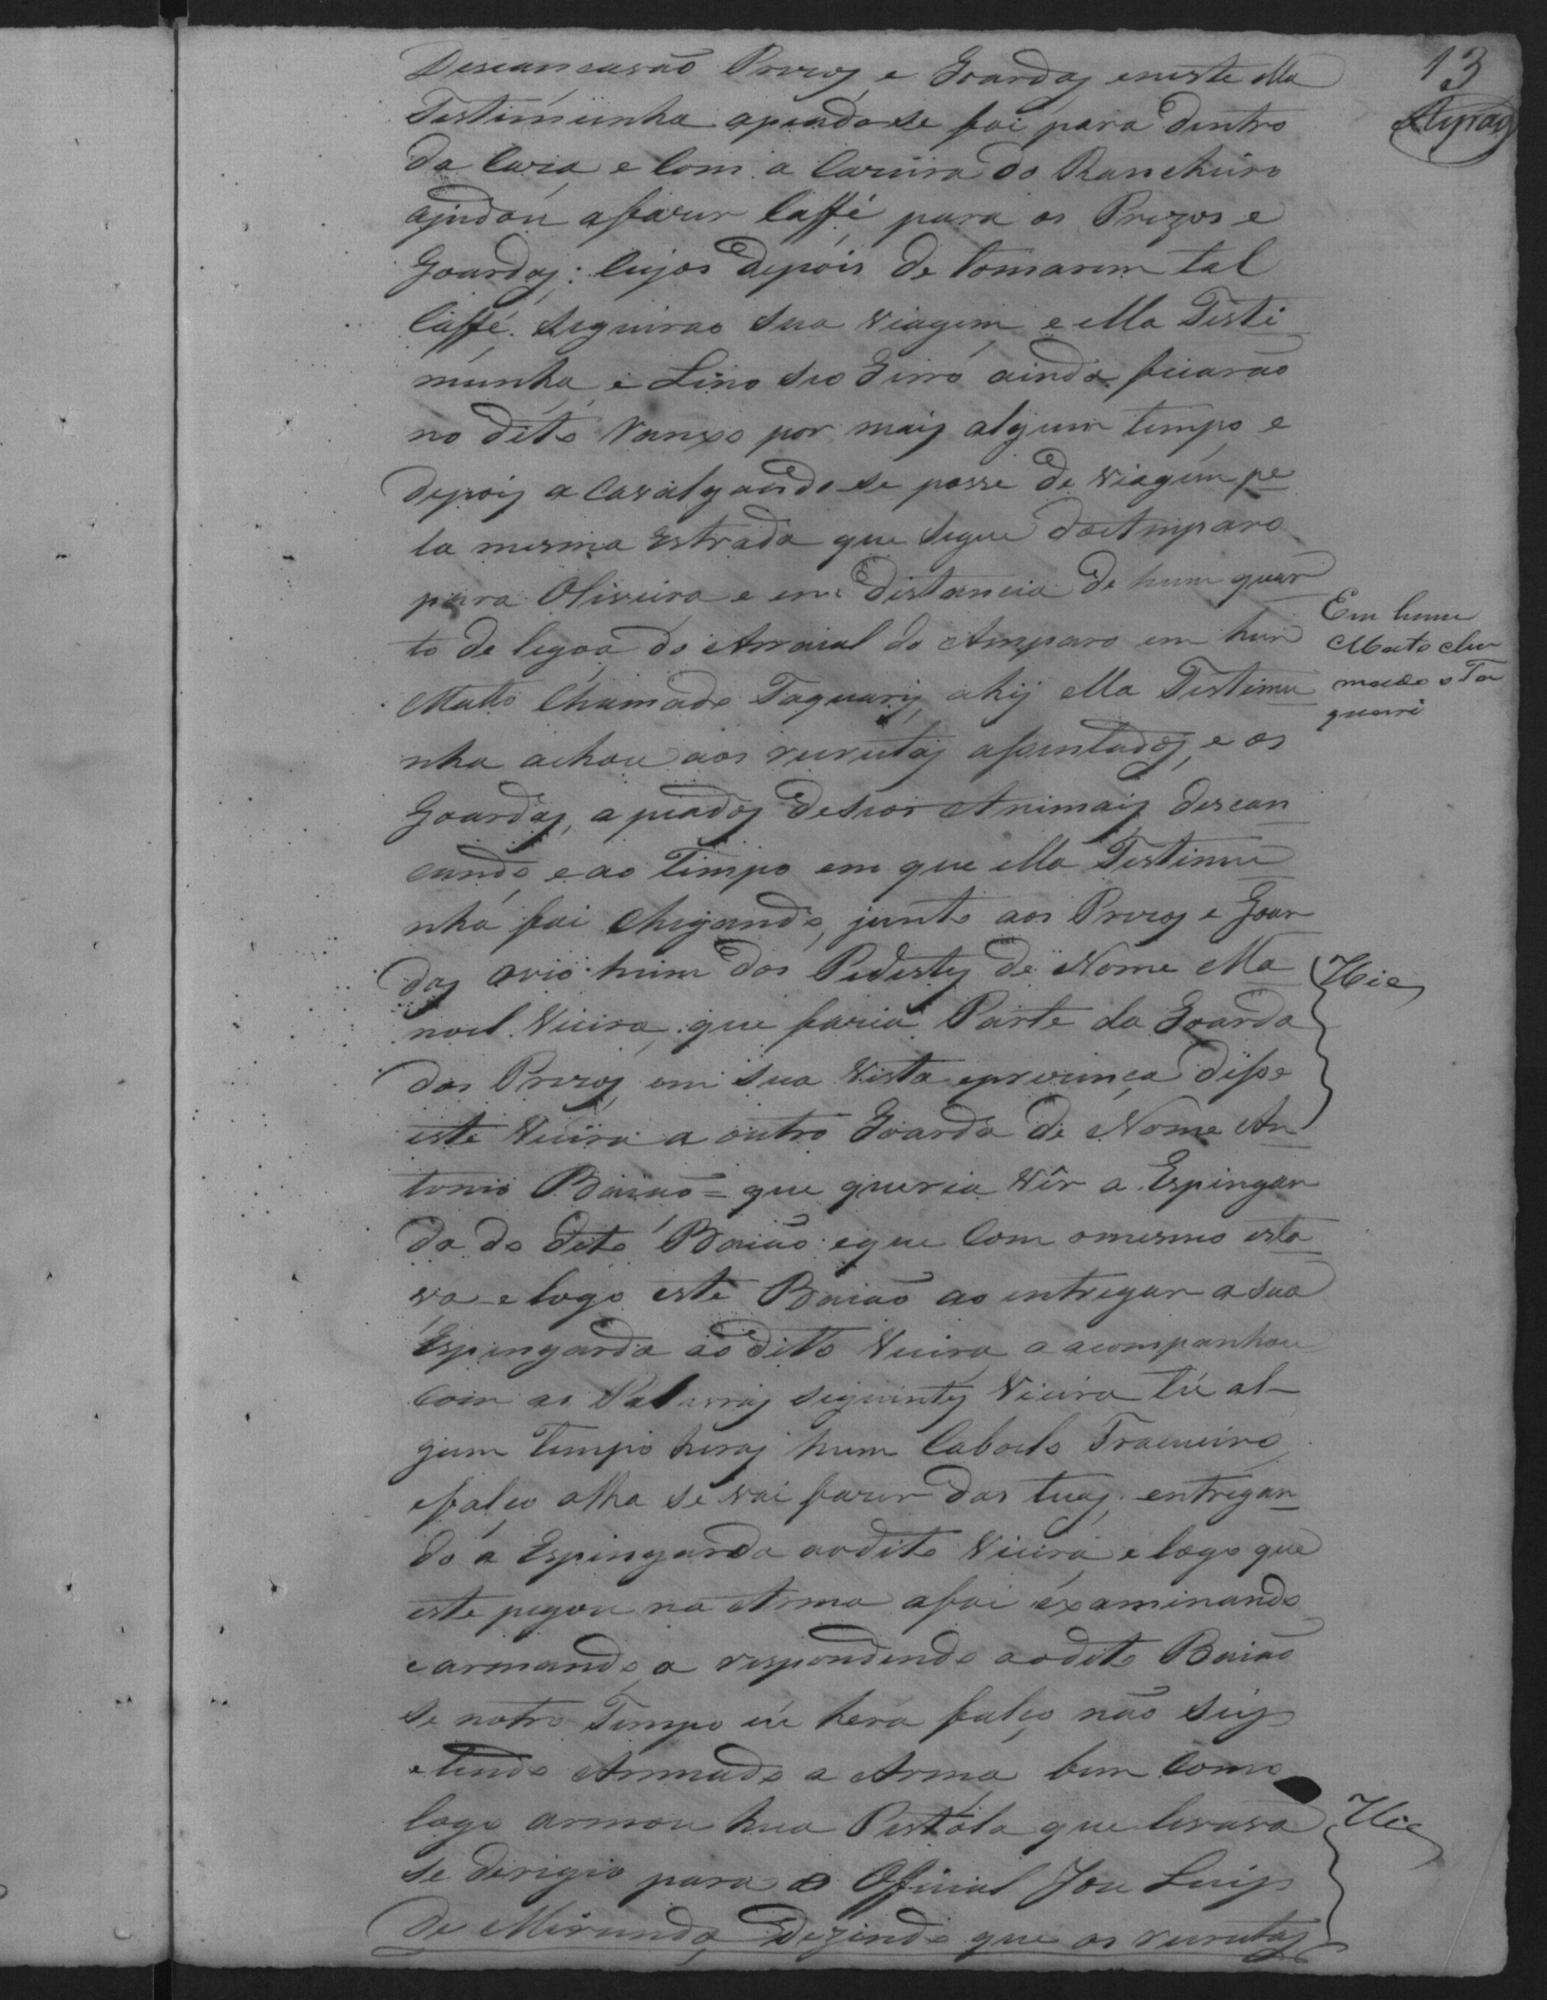 13
Descancarão Prezos e Goardas eneste ella
Testimunha apeandose foi para dentro
da Caza, e Com a Cazeira do Rancheiro
ajudou afazer Caffé para os Prezos e
Goardas: Cujos depois de tomarem tal
Caffé seguirão sua viagem e ella Testi
munha, e Lino seo Genro ainda ficarão
no dito Ranxo por mais algum tempo e
depois a Cavalgando-se posse de viagem pe
la mesma Estrada que segue do Amparo
para Oliveira e em distancia de hum quar
to de legoa do Arraial do Amparo em hum
Matto Chamado Taquary, ahy ella Testimu
nha achou aos recrutas asentados, e os
Goardas, apeados de seos Animais descan
cando, e ao Tempo em que ella Testimu
nha foi chegando, junto aos Prezos e Goar
das ovio hum dos Pedestes de Nome Ma
noel Vieira, que fazia Parte da Goarda
dos Prezos em sua vista eprezença disse
este Vieira a outro Goarda de Nome An
tonio Baião = que queria vêr a Espingar
da do dito Baião eque Com omesmo esta
va e logo este Baião ao entregar a sua
Espingarda ao dito Vieira a acompanhou
com as Palavras seguintes Vieira tu al-
gum Tempo heras hum Caboclo Traeueiro
efalço olha se vai fazer das tuas, entregan
do a Espingarda aodito Vieira, e logo que
este pegou na Arma afoi examinando
e armando, a respondendo aodito Baião
se notro Tempo eu hera falço não sey
e tendo Armado a Arma, bem como
logo armou hua Pistóla que levava
se dirigio para o Official Joze Luis
de Miranda, dezindo que os recrutas
Em hum
Mato cha
mado o Ta
quari
Hic
Hic